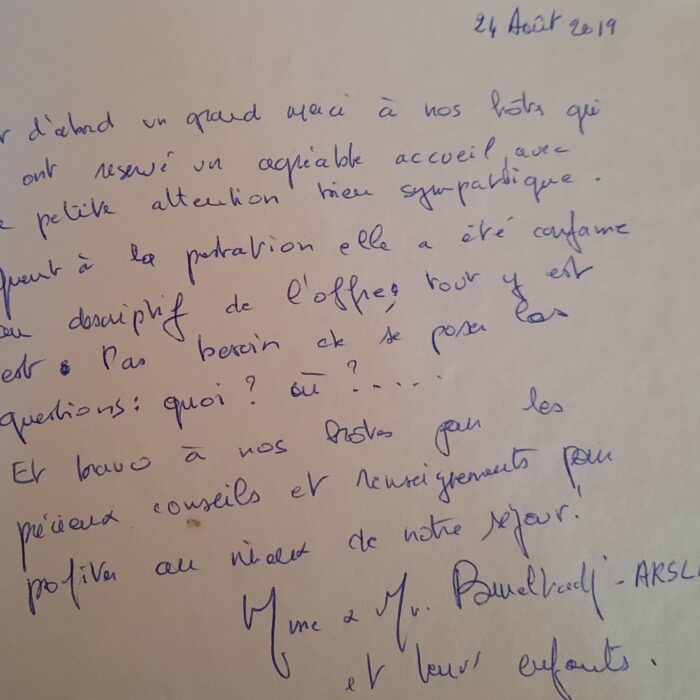 24 Août 2019
d'abord un grand merci à nos hôtes qui
ont reservé un agréable accueil, avec
petite attention bien sympathique.
Quant à la prestation elle a été conforme
au descriptif de l'offre, tout y est
est. Pas besoin de se poser les
questions: quoi? où?.....
Et bravo à nos hôtes pour les
précieux conseils et renseignements pour
profiter au mieux de notre séjour!
Mme & Mr. - ARSL
et leurs enfants.